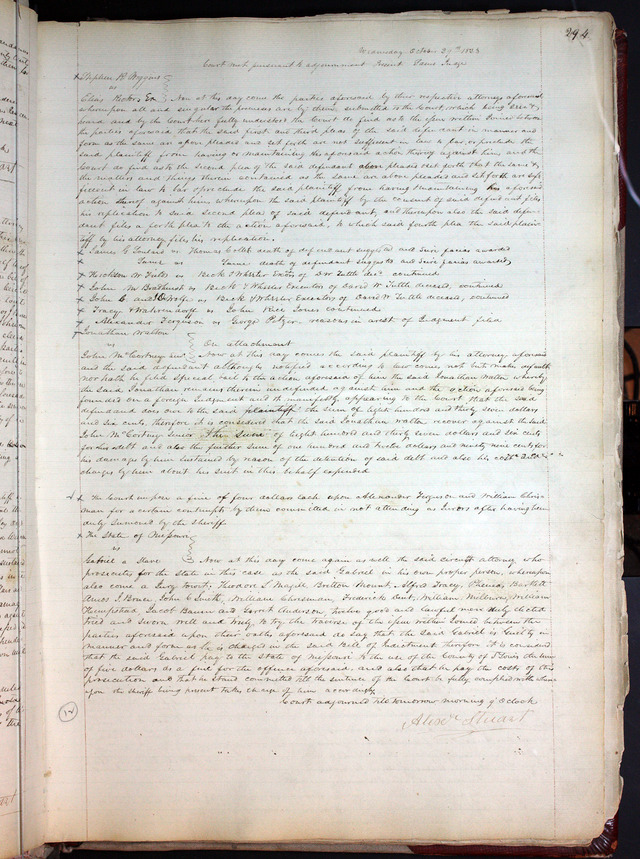 294
Wednesday October 29th 1823
Court met pursuant to adjournment Present Same Judge
Stephen R Wiggins
vs
Elias Rector Exr Now at this day come the parties aforesaid by their respective attorneys aforesaid
whereupon all and singular the premises are by them submitted to the Court, which being seen &
heard and by the Court here fully understood the Court do find as to the issue within Joined between
the parties aforesaid that the said first and third pleas of the said defendant in manner and
form as the same are above pleaded and set forth are not sufficient in law to bar or preclude the
said plaintiff from having or maintaining his aforesaid action thereof against him and the
Court do find as to the second plea of the said defendant above pleaded set forth that the same &
the matters and things therein contained as the same are above pleaded and set forth are suf
ficient in law to bar & preclude the said plaintiff from having & maintaining his aforesaid
action thereof against him whereupon the said plaintiff by the consent of said defendant files
his replication to said second plea of said defendant, and thereupon also the said defen-
dant files a forth plea to the action aforesaid, to which said fourth plea the said plain
tiff by his attorney files his replication.
James G vs Thomas Collet death of defendant suggested and Scire facias awarded
Same vs Same death of defendant suggested and Scire facias awarded,
vs Beck & Wheeler Extors of D W Tuttle decd continued
John vs Beck & Wheeler Executors of David W Tuttle deceased, continued
John C and vs Beck & Wheeler Executors of David W Tuttle deceased, continued
Tracy & Wahrendorff vs John Rice Jones continued
Alexander Ferguson vs George reasons in arrest of Judgment filed
Jonathan Walton
vs On attachment
John McCortney senr Now at this day comes the said plaintiff by his attorney aforesaid
and the said defendant although notified according to law comes not but makes default
nor hath he filed special bail to the action aforesaid of him the said Jonathan Walton whereby
the said Jonathan remains therein undefended against him and the action aforesaid being
founded on a foreign Judgment and it manifestly appearing to the Court that the said
defendant does owe to the said plaintiff the sum of eight hundred and thirty seven dollars
and six cents, therefore it is considered that the said Jonathan Walton recover against the said
John McCortney Senior the sum of eight hundred and thirty seven dollars and six cents
for his debt and also the further sum of one hundred and twelve dollars and ninety nine cents for
his damages by him sustained by reason of the detention of said debt and also his costs and
charges by him about his suit in this behalf expended
The Court impose a fine of four dollars each upon Alexander Ferguson and William Chris-
man for a certain contempt by them committed in not attending as Jurors after having been
duly Summoned by the Sheriff
The State of Missouri
vs
Gabriel a Slave Now at this day come again as well the said circuit attorney who
prosecutes for the State in this case as the said Gabriel in his own proper person, whereupon
also come a Jury towit, Theodore Britton Mount, Alfred Tracy, Bartlett
Amos J Bruce, John C Smith, William Chrisman, Frederick Dent, William William
Hempstead Jacob and Garret Anderson, twelve good and lawful men duly elected
tried and sworn well and truly to try the traverse of the issue within Joined between the
parties aforesaid upon their oaths aforesaid do say that the Said Gabriel is Guilty in
manner and form as he is charged in the Said Bill of Indictment therefore it is consider
ed that the said Gabriel pay to the State of Missouri to the use of the County of St Louis the sum
of five dollars as a fine for the offence aforesaid and also that he pay the costs of this
prosecution and that he stand committed till the sentence of the Court be fully complied with. Where
upon the Sheriff being present takes charge of him accordingly
Court adjourned till tomorrow morning 9 O'clock
Alexr Stuart